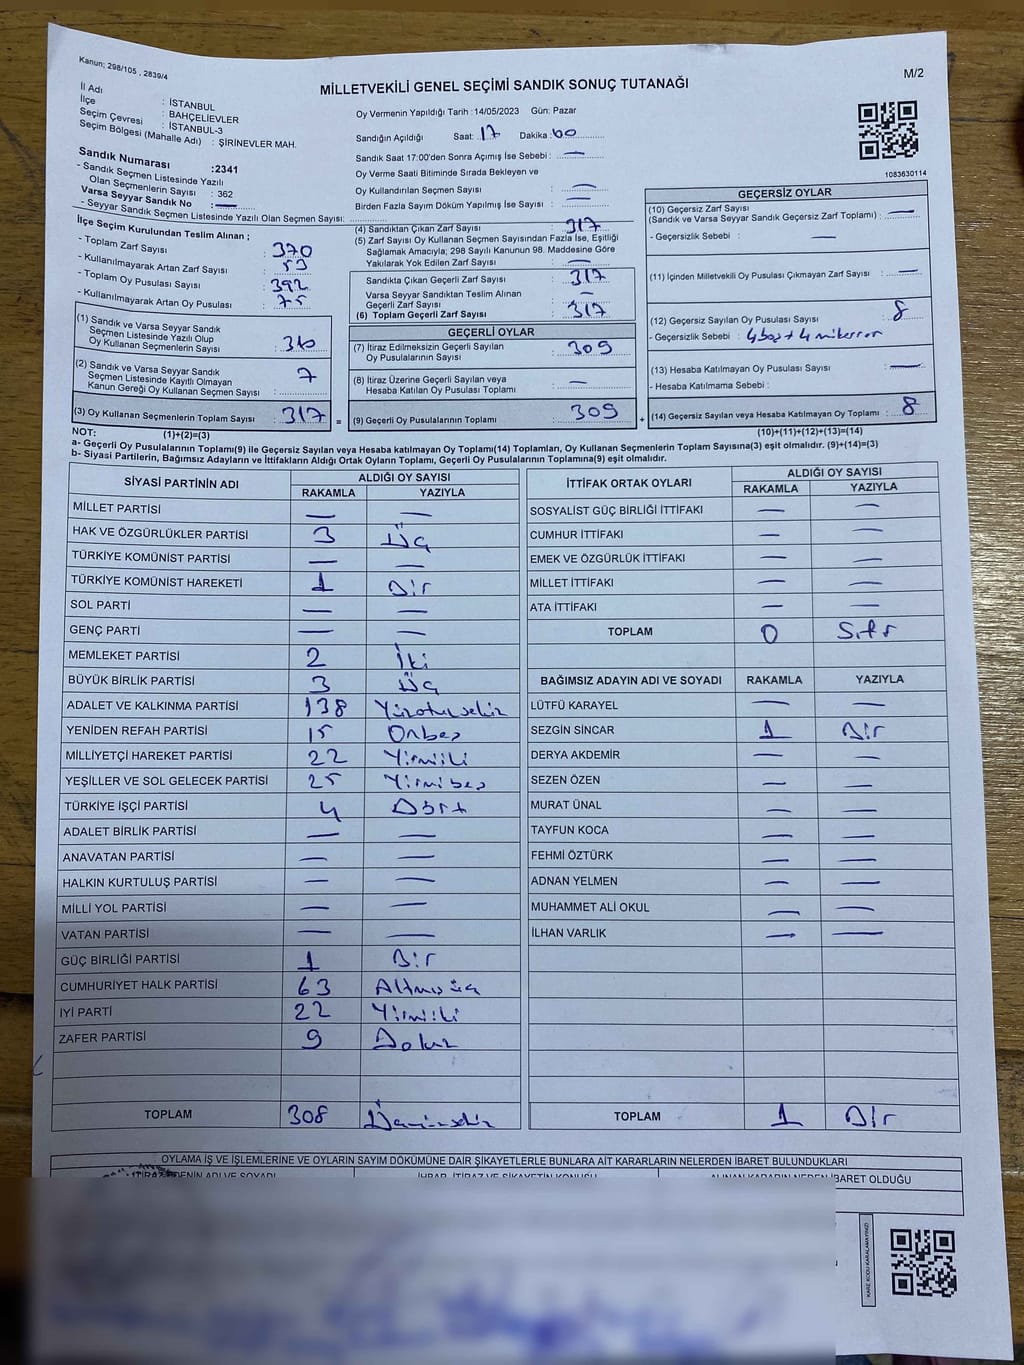 Kanun; 298/105 , 2839/4
MİLLETVEKİLİ GENEL SEÇİMİ SANDIK SONUÇ TUTANAĞI
M/2
İl Adı : İSTANBUL
İlçe : BAHÇELİEVLER
Seçim Çevresi : İSTANBUL-3
Seçim Bölgesi (Mahalle Adı) : ŞİRİNEVLER MAH.
Sandık Numarası :2341
- Sandık Seçmen Listesinde Yazılı
Olan Seçmenlerin Sayısı : 362
Varsa Seyyar Sandık No : —
- Seyyar Sandık Seçmen Listesinde Yazılı Olan Seçmen Sayısı:
Oy Vermenin Yapıldığı Tarih : 14/05/2023 Gün: Pazar
Sandığın Açıldığı Saat: 17 Dakika : 00
Sandık Saat 17:00'den Sonra Açımış İse Sebebi : —
Oy Verme Saati Bitiminde Sırada Bekleyen ve
Oy Kullandırılan Seçmen Sayısı : —
Birden Fazla Sayım Döküm Yapılmış İse Sayısı : —
1083630114
İlçe Seçim Kurulundan Teslim Alınan ;
- Toplam Zarf Sayısı : 370
- Kullanılmayarak Artan Zarf Sayısı : 53
- Toplam Oy Pusulası Sayısı : 392
- Kullanılmayarak Artan Oy Pusulası : 75
(1) Sandık ve Varsa Seyyar Sandık
Seçmen Listesinde Yazılı Olup
Oy Kullanan Seçmenlerin Sayısı : 310
(2) Sandık ve Varsa Seyyar Sandık
Seçmen Listesinde Kayıtlı Olmayan
Kanun Gereği Oy Kullanan Seçmen Sayısı : 7
(3) Oy Kullanan Seçmenlerin Toplam Sayısı : 317 =
(1)+(2)=(3)
(4) Sandıktan Çıkan Zarf Sayısı : 317
(5) Zarf Sayısı Oy Kullanan Seçmen Sayısından Fazla İse, Eşitliği
Sağlamak Amacıyla; 298 Sayılı Kanunun 98. Maddesine Göre
Yakılarak Yok Edilen Zarf Sayısı : —
Sandıkta Çıkan Geçerli Zarf Sayısı : 317
Varsa Seyyar Sandıktan Teslim Alınan
Geçerli Zarf Sayısı : —
(6) Toplam Geçerli Zarf Sayısı : 317
GEÇERLİ OYLAR
(7) İtiraz Edilmeksizin Geçerli Sayılan
Oy Pusulalarının Sayısı : 309
(8) İtiraz Üzerine Geçerli Sayılan veya
Hesaba Katılan Oy Pusulası Toplamı : —
(9) Geçerli Oy Pusulalarının Toplamı : 309 +
GEÇERSİZ OYLAR
(10) Geçersiz Zarf Sayısı
(Sandık ve Varsa Seyyar Sandık Geçersiz Zarf Toplamı) : —
- Geçersizlik Sebebi : —
(11) İçinden Milletvekili Oy Pusulası Çıkmayan Zarf Sayısı : —
(12) Geçersiz Sayılan Oy Pusulası Sayısı : 8
- Geçersizlik Sebebi : 4 boş + 4 mükerrer
(13) Hesaba Katılmayan Oy Pusulası Sayısı : —
- Hesaba Katılmama Sebebi :
(14) Geçersiz Sayılan veya Hesaba Katılmayan Oy Toplamı : 8
(10)+(11)+(12)+(13)=(14)
NOT:
a- Geçerli Oy Pusulalarının Toplamı(9) ile Geçersiz Sayılan veya Hesaba katılmayan Oy Toplamı(14) Toplamları, Oy Kullanan Seçmenlerin Toplam Sayısına(3) eşit olmalıdır. (9)+(14)=(3)
b- Siyasi Partilerin, Bağımsız Adayların ve İttifakların Aldığı Ortak Oyların Toplamı, Geçerli Oy Pusulalarının Toplamına(9) eşit olmalıdır.
SİYASİ PARTİNİN ADI ALDIĞI OY SAYISI
RAKAMLA YAZIYLA
MİLLET PARTİSİ — —
HAK VE ÖZGÜRLÜKLER PARTİSİ 3 Üç
TÜRKİYE KOMÜNİST PARTİSİ — —
TÜRKİYE KOMÜNİST HAREKETİ 1 Bir
SOL PARTİ — —
GENÇ PARTİ — —
MEMLEKET PARTİSİ 2 İki
BÜYÜK BİRLİK PARTİSİ 3 Üç
ADALET VE KALKINMA PARTİSİ 138 Yüzotuzsekiz
YENİDEN REFAH PARTİSİ 15 Onbeş
MİLLİYETÇİ HAREKET PARTİSİ 22 Yirmiiki
YEŞİLLER VE SOL GELECEK PARTİSİ 25 Yirmibeş
TÜRKİYE İŞÇİ PARTİSİ 4 Dört
ADALET BİRLİK PARTİSİ — —
ANAVATAN PARTİSİ — —
HALKIN KURTULUŞ PARTİSİ — —
MİLLİ YOL PARTİSİ — —
VATAN PARTİSİ — —
GÜÇ BİRLİĞİ PARTİSİ 1 Bir
CUMHURİYET HALK PARTİSİ 63 Altmışüç
İYİ PARTİ 22 Yirmiiki
ZAFER PARTİSİ 9 Dokuz
TOPLAM 308 Üçyüzsekiz
İTTİFAK ORTAK OYLARI ALDIĞI OY SAYISI
RAKAMLA YAZIYLA
SOSYALİST GÜÇ BİRLİĞİ İTTİFAKI — —
CUMHUR İTTİFAKI — —
EMEK VE ÖZGÜRLÜK İTTİFAKI — —
MİLLET İTTİFAKI — —
ATA İTTİFAKI — —
TOPLAM 0 Sıfır
BAĞIMSIZ ADAYIN ADI VE SOYADI RAKAMLA YAZIYLA
LÜTFÜ KARAYEL — —
SEZGİN SİNCAR 1 Bir
DERYA AKDEMİR — —
SEZEN ÖZEN — —
MURAT ÜNAL — —
TAYFUN KOCA — —
FEHMİ ÖZTÜRK — —
ADNAN YELMEN — —
MUHAMMET ALİ OKUL — —
İLHAN VARLIK — —
TOPLAM 1 Bir
OYLAMA İŞ VE İŞLEMLERİNE VE OYLARIN SAYIM DÖKÜMÜNE DAİR ŞİKAYETLERLE BUNLARA AİT KARARLARIN NELERDEN İBARET BULUNDUKLARI
İTİRAZ EDENİN ADI VE SOYADI İHBAR, İTİRAZ VE ŞİKAYETİN KONUSU ALINAN KARARIN NEDEN İBARET OLDUĞU